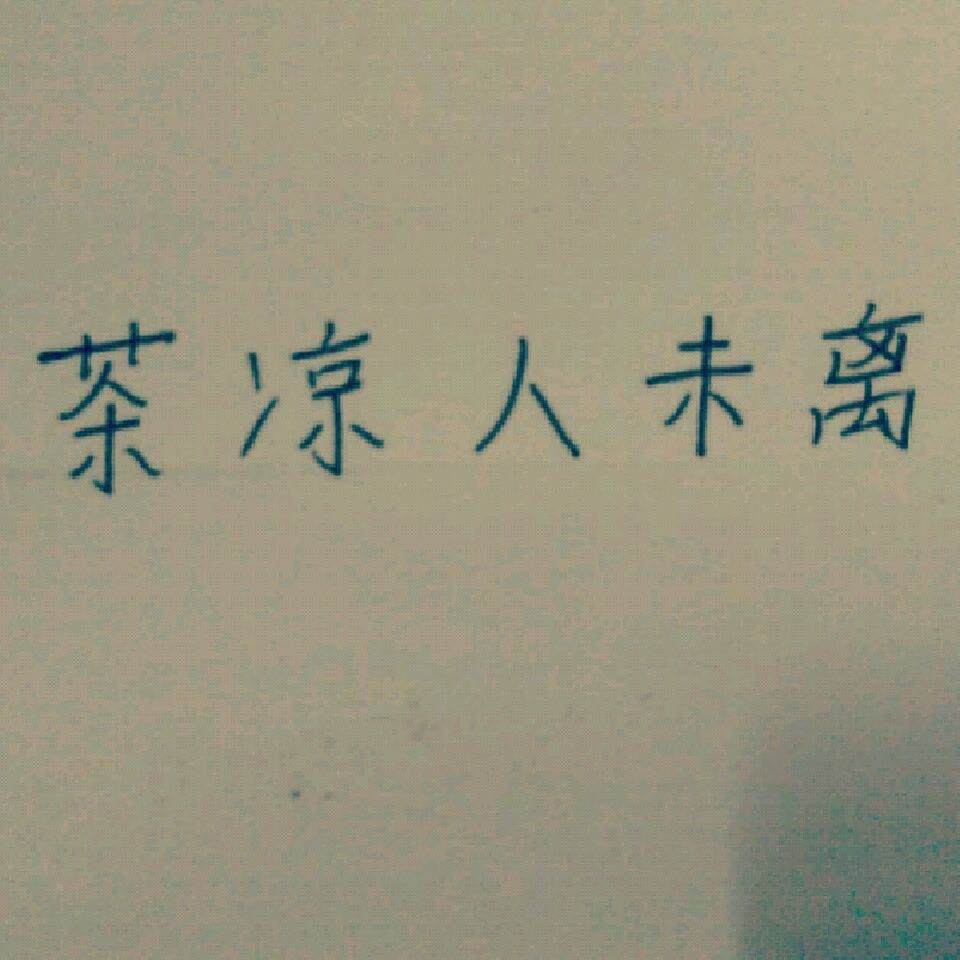 茶凉人未离